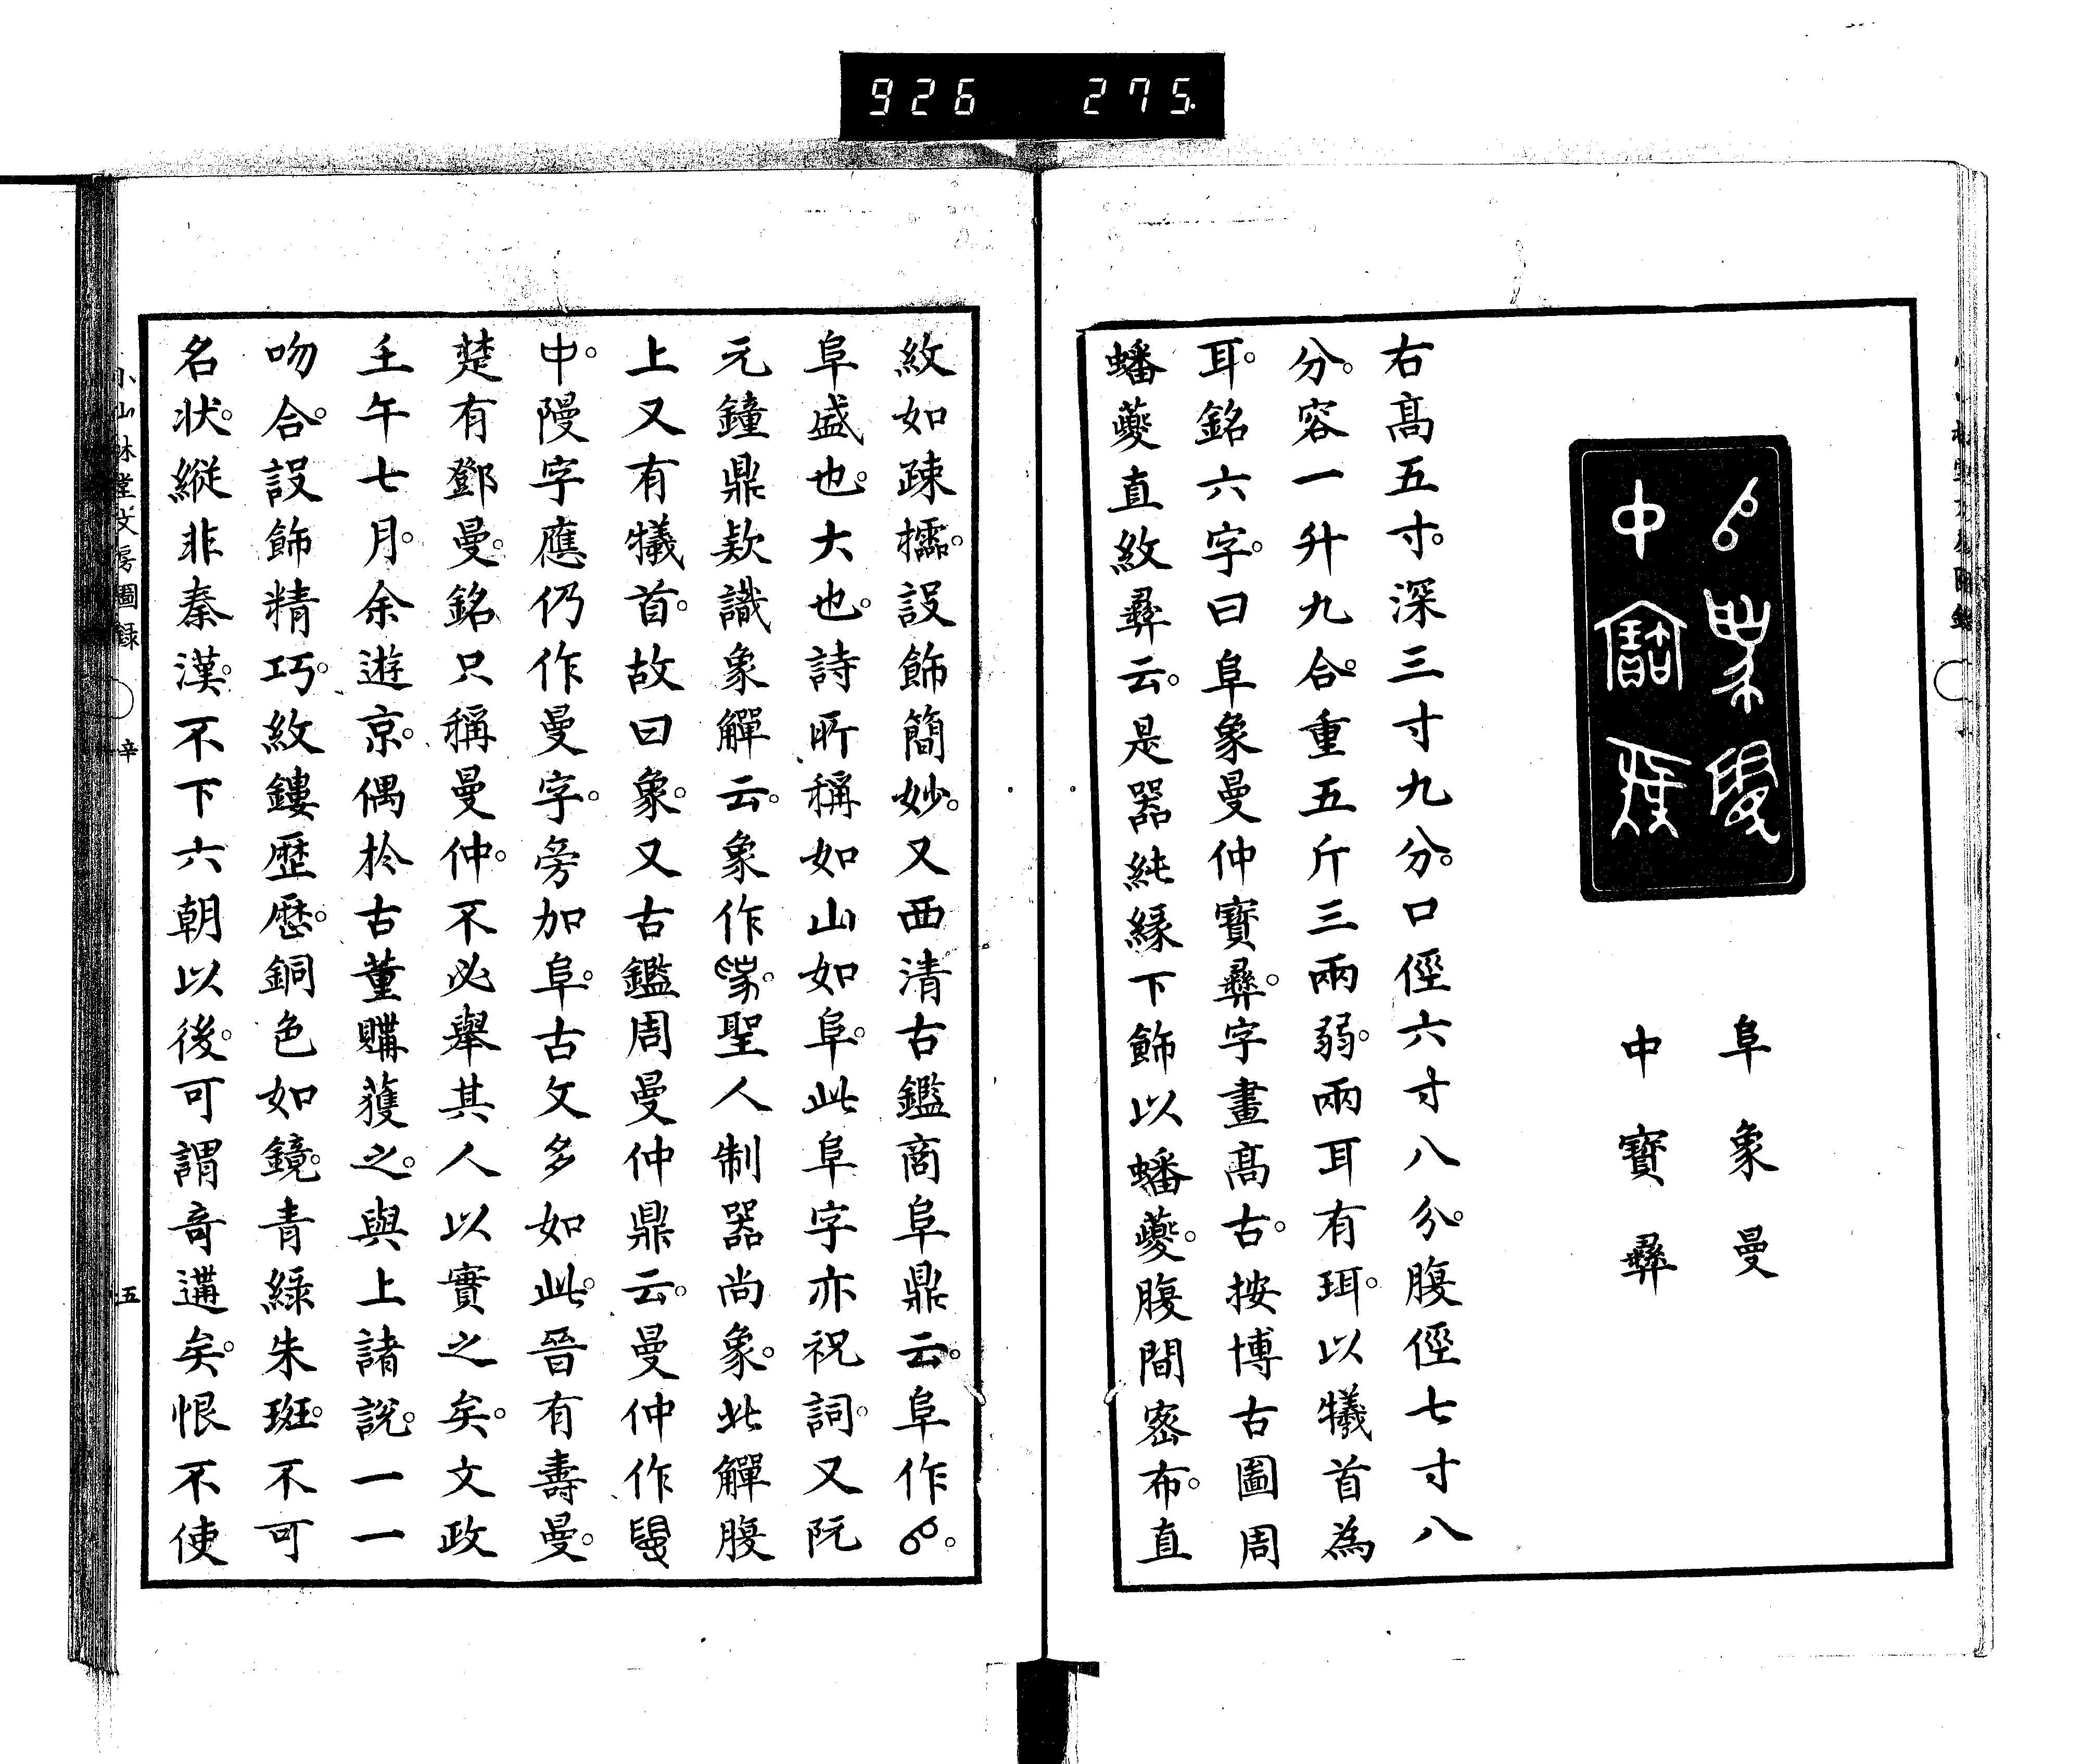 926 275.
阜象曼
中寶彝
右高五寸。深三寸九分。口徑六寸八分。腹徑七寸八
分。容一升九合。重五斤三兩弱。兩耳有珥。以犧首為
耳。銘六字。曰阜象曼仲寶彝。字畫高古。按博古圖周
蟠夔直紋彝云。是器純緣下飾以蟠夔。腹間密布。直
紋如疎櫺。設飾簡妙。又西清古鑑商阜鼎云。阜作。
阜盛也。大也。詩所稱如山如阜。此阜字亦祝詞。又阮
元鐘鼎欵識象觶云。象作。聖人制器尚象。此觶腹
上又有犧首。故曰象。又古鑑周曼仲鼎云。曼仲作
中。隁字應仍作曼字。旁加阜。古文多如此。晉有壽曼。
楚有鄧曼。銘只稱曼仲。不必舉其人以實之矣。文政
壬午七月。余遊京。偶於古董購獲之。與上諸說。一一
吻合。設飾精巧。紋鏤歷歷。銅色如鏡。青綠朱斑。不可
名狀。縱非秦漢。不下六朝以後。可謂奇遘矣。恨不使
小山林堂文房圖録 辛 五